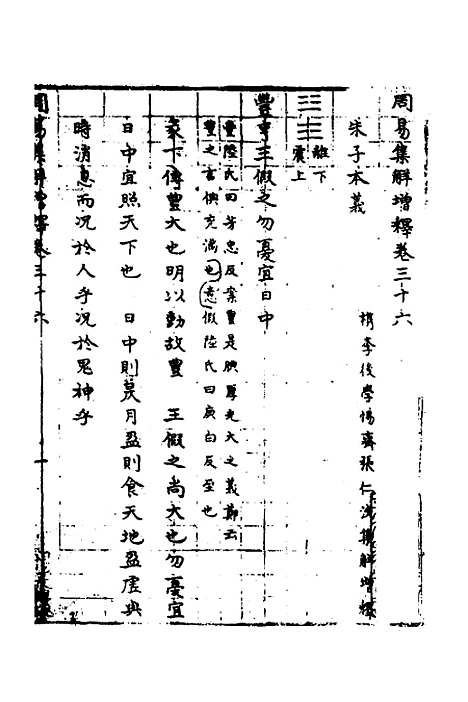 周易集解增釋卷三十六
檇李後學惕齋張仁浹集解增釋
朱子本義
離下
震上
豐亨王假之勿憂宜日中
豐陸氏曰芳忠反案豐是腆厚光大之義鄭云
豐之言倎充滿也意假陸氏曰庚白反至也
彖下傳豐大也明以動故豐 王假之尚大也勿憂宜
日中宜照天下也 日中則昃月盈則食天地盈虛與
時消息而况於人乎况於鬼神乎
周易集解增釋卷三十六
一